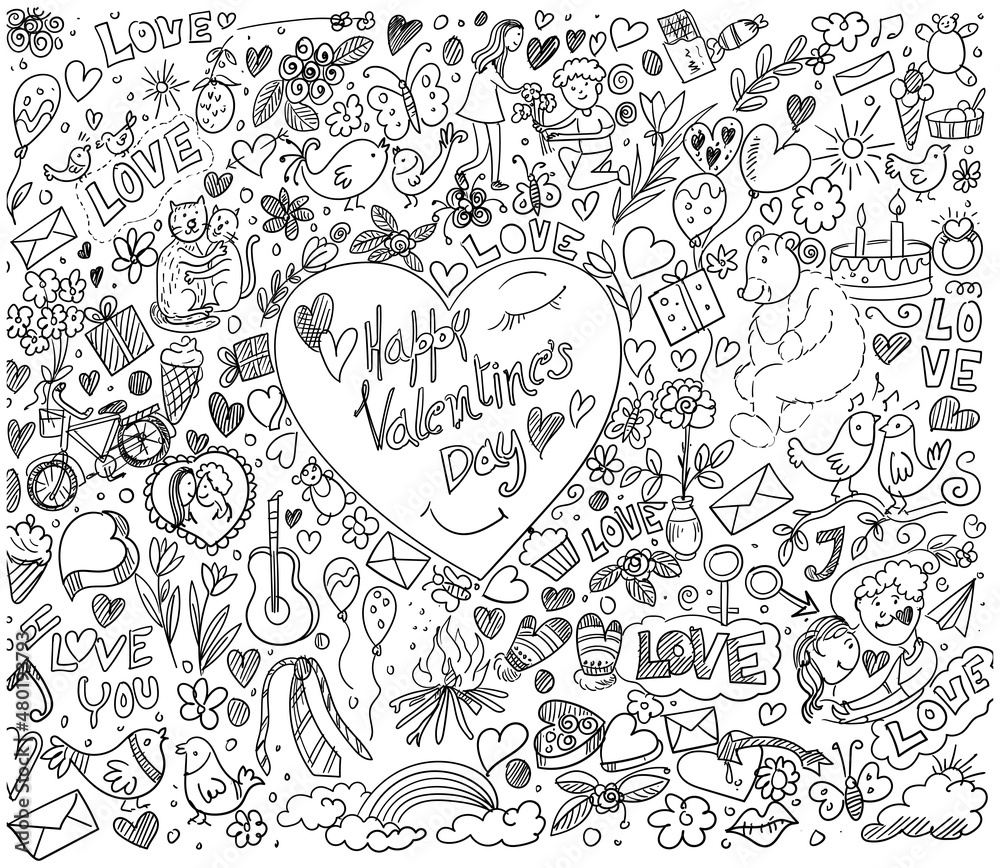 LOVE
LOVE
LOVE
Happy
Valentine's
Day
LO
VE
LOVE
S
J
I
LOVE
YOU
LOVE
LOVE
Adobe Stock | #480193793